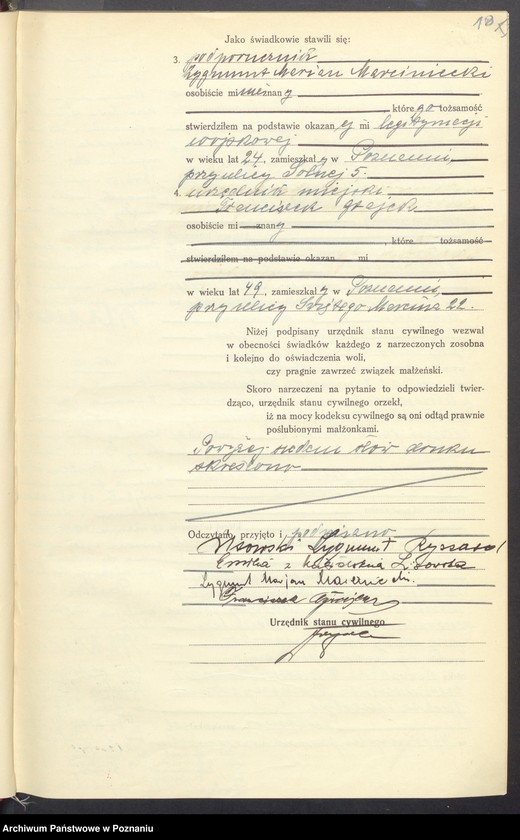 Jako świadkowie stawili się:
3. podporucznik
Zygmunt Marian Marciniecki
osobiście mi nie znany
, które go tożsamość
stwierdziłem na podstawie okazan ej mi legitymacji
wojskowej
w wieku lat 24, zamieszkały w Poznaniu,
przy ulicy Solnej 5.
4. urzędnik miejski
Franciszek
osobiście mi znany
, które tożsamość
stwierdziłem na podstawie okazan mi
w wieku lat 49, zamieszkały w Poznaniu,
przy ulicy Świętego Marcina 22.
Niżej podpisany urzędnik stanu cywilnego wezwał
w obecności świadków każdego z narzeczonych zosobna
i kolejno do oświadczenia woli,
czy pragnie zawrzeć związek małżeński.
Skoro narzeczeni na pytanie to odpowiedzieli twier-
dząco, urzędnik stanu cywilnego orzekł,
iż na mocy kodeksu cywilnego są oni odtąd prawnie
poślubionymi małżonkami.
Powyżej siedem słów druku
skreślono
Odczytano, przyjęto i podpisano
Zygmunt Ryszard
Emilia z
Zygmunt Marjan
Urzędnik stanu cywilnego
Archiwum Państwowe w Poznaniu